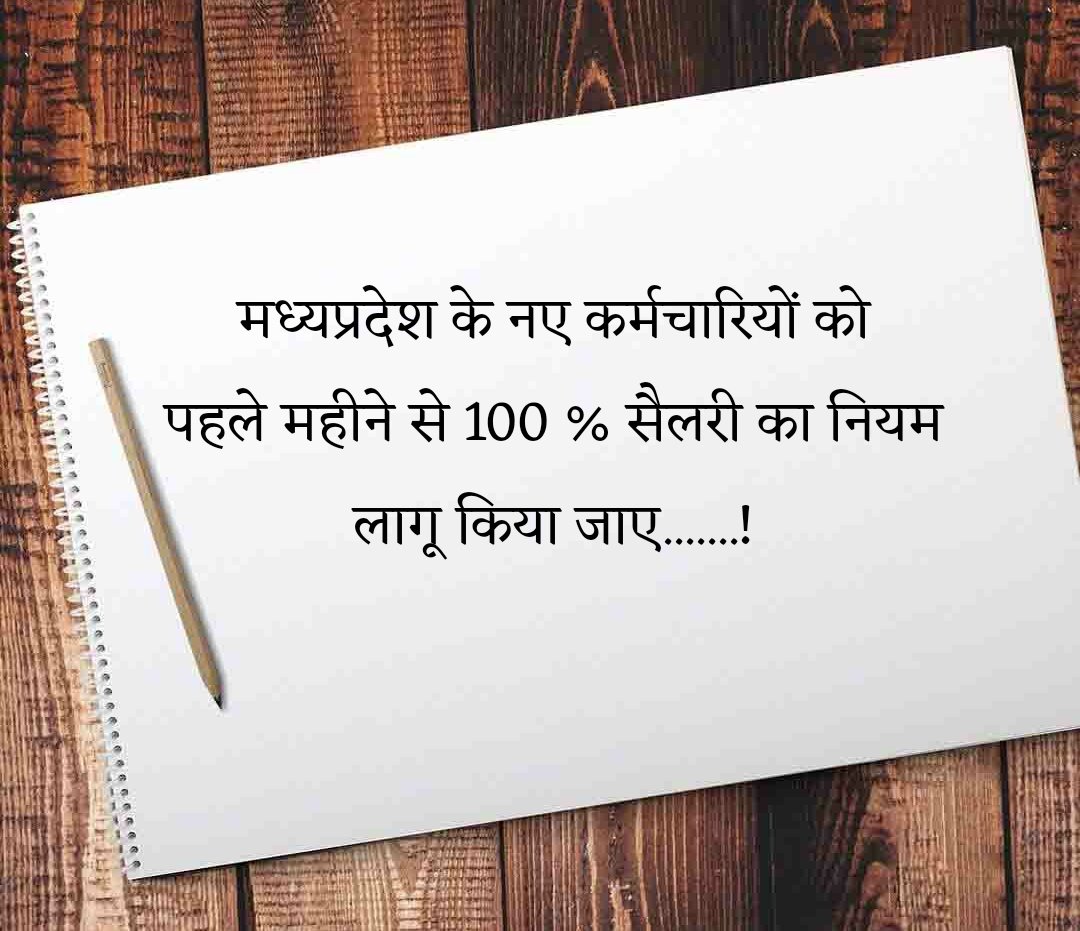 मध्यप्रदेश के नए कर्मचारियों को
पहले महीने से 100 % सैलरी का नियम
लागू किया जाए.......!